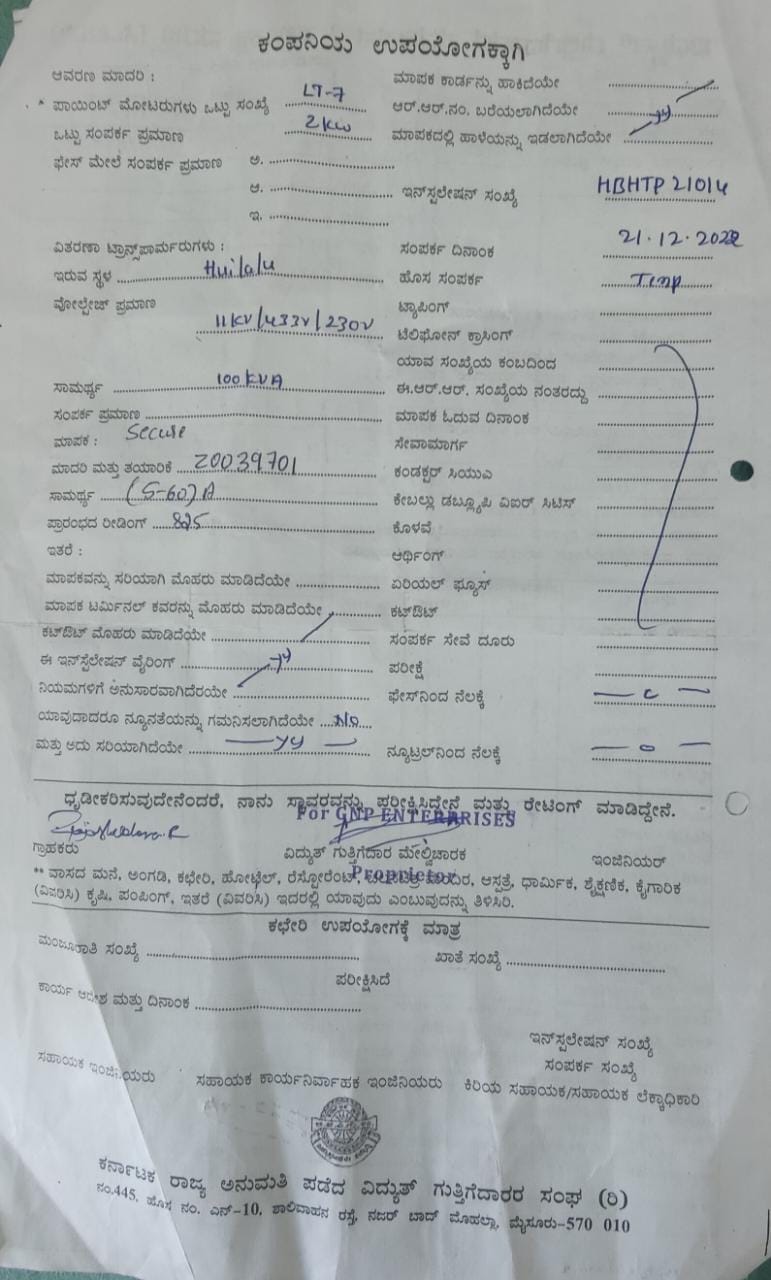 ಕಂಪನಿಯ ಉಪಯೋಗಕ್ಕಾಗಿ
ಆವರಣ ಮಾದರಿ :
ಮಾಪಕ ಕಾರ್ಡನ್ನು ಹಾಕಿದೆಯೇ
* ಪಾಯಿಂಟ್ ಮೋಟರುಗಳು ಒಟ್ಟು ಸಂಖ್ಯೆ LT-7
ಆರ್.ಆರ್.ನಂ. ಬರೆಯಲಾಗಿದೆಯೇ yy
ಒಟ್ಟು ಸಂಪರ್ಕ ಪ್ರಮಾಣ 2 kw
ಮಾಪಕದಲ್ಲಿ ಹಾಳೆಯನ್ನು ಇಡಲಾಗಿದೆಯೇ
ಫೇಸ್ ಮೇಲೆ ಸಂಪರ್ಕ ಪ್ರಮಾಣ ಅ.
ಆ.
ಇನ್‌ಸ್ಟಲೇಷನ್ ಸಂಖ್ಯೆ HBHTP 21014
ಇ.
ವಿತರಣಾ ಟ್ರಾನ್ಸ್‌ಫಾರ್ಮರುಗಳು :
ಸಂಪರ್ಕ ದಿನಾಂಕ 21.12.2022
ಇರುವ ಸ್ಥಳ Huilalu
ಹೊಸ ಸಂಪರ್ಕ Temp
ವೋಲ್ಟೇಜ್ ಪ್ರಮಾಣ
ಟ್ಯಾಪಿಂಗ್
11KV/433V/230V
ಟೆಲಿಫೋನ್ ಕ್ರಾಸಿಂಗ್
ಯಾವ ಸಂಖ್ಯೆಯ ಕಂಬದಿಂದ
ಸಾಮರ್ಥ್ಯ 100 KVA
ಈ.ಆರ್.ಆರ್. ಸಂಖ್ಯೆಯ ನಂತರದ್ದು
ಸಂಪರ್ಕ ಪ್ರಮಾಣ
ಮಾಪಕ ಓದುವ ದಿನಾಂಕ
ಮಾಪಕ : Secure
ಸೇವಾಮಾರ್ಗ
ಮಾದರಿ ಮತ್ತು ತಯಾರಿಕೆ 20039701
ಕಂಡಕ್ಟರ್ ಸಿಯುಎ
ಸಾಮರ್ಥ್ಯ (5-60) A
ಕೇಬಲ್ಲು ಡಬ್ಲ್ಯೂಪಿ ವಿಐರ್ ಸಿಟಿಸ್
ಪ್ರಾರಂಭದ ರೀಡಿಂಗ್ 825
ಕೊಳವೆ
ಇತರೆ :
ಆರ್ಥಿಂಗ್
ಮಾಪಕವನ್ನು ಸರಿಯಾಗಿ ಮೊಹರು ಮಾಡಿದೆಯೇ
ಏರಿಯಲ್ ಫ್ಯೂಸ್
ಮಾಪಕ ಟರ್ಮಿನಲ್ ಕವರನ್ನು ಮೊಹರು ಮಾಡಿದೆಯೇ
ಕಟ್‌ಔಟ್
ಕಟ್‌ಔಟ್ ಮೊಹರು ಮಾಡಿದೆಯೇ
ಸಂಪರ್ಕ ಸೇವೆ ದೂರು
ಈ ಇನ್‌ಸ್ಟಲೇಷನ್ ವೈರಿಂಗ್ yy
ಪರೀಕ್ಷೆ
ನಿಯಮಗಳಿಗೆ ಅನುಸಾರವಾಗಿದೆರಯೇ
ಫೇಸ್‌ನಿಂದ ನೆಲಕ್ಕೆ
ಯಾವುದಾದರೂ ನ್ಯೂನತೆಯನ್ನು ಗಮನಿಸಲಾಗಿದೆಯೇ No
ಮತ್ತು ಅದು ಸರಿಯಾಗಿದೆಯೇ — yy —
ನ್ಯೂಟ್ರಲ್‌ನಿಂದ ನೆಲಕ್ಕೆ — o —
ಧೃಡೀಕರಿಸುವುದೇನೆಂದರೆ, ನಾನು ಸ್ಥಾವರವನ್ನು ಪರೀಕ್ಷಿಸಿದ್ದೇನೆ ಮತ್ತು ರೇಟಿಂಗ್ ಮಾಡಿದ್ದೇನೆ.
For GNP ENTERPRISES
ಗ್ರಾಹಕರು
ವಿದ್ಯುತ್ ಗುತ್ತಿಗೆದಾರ ಮೇಲ್ವಿಚಾರಕ
ಇಂಜಿನಿಯರ್
Proprietor
** ವಾಸದ ಮನೆ, ಅಂಗಡಿ, ಕಛೇರಿ, ಹೋಟೆಲ್, ರೆಸ್ಟೋರೆಂಟ್, ಆಸ್ಪತ್ರೆ, ಧಾರ್ಮಿಕ, ಶೈಕ್ಷಣಿಕ, ಕೈಗಾರಿಕ
(ವಿವರಿಸಿ) ಕೃಷಿ, ಪಂಪಿಂಗ್, ಇತರೆ (ವಿವರಿಸಿ) ಇದರಲ್ಲಿ ಯಾವುದು ಎಂಬುವುದನ್ನು ತಿಳಿಸಿರಿ.
ಕಛೇರಿ ಉಪಯೋಗಕ್ಕೆ ಮಾತ್ರ
ಮಂಜೂರಾತಿ ಸಂಖ್ಯೆ
ಖಾತೆ ಸಂಖ್ಯೆ
ಪರೀಕ್ಷಿಸಿದೆ
ಕಾರ್ಯ ಆದೇಶ ಮತ್ತು ದಿನಾಂಕ
ಇನ್‌ಸ್ಟಲೇಷನ್ ಸಂಖ್ಯೆ
ಸಂಪರ್ಕ ಸಂಖ್ಯೆ
ಸಹಾಯಕ ಇಂಜಿನಿಯರು
ಸಹಾಯಕ ಕಾರ್ಯನಿರ್ವಾಹಕ ಇಂಜಿನಿಯರು
ಕಿರಿಯ ಸಹಾಯಕ/ಸಹಾಯಕ ಲೆಕ್ಕಾಧಿಕಾರಿ
ಕರ್ನಾಟಕ ರಾಜ್ಯ ಅನುಮತಿ ಪಡೆದ ವಿದ್ಯುತ್ ಗುತ್ತಿಗೆದಾರರ ಸಂಘ (ರಿ)
ನಂ.445, ಹೊಸ ನಂ. ಎನ್-10, ಶಾಲಿವಾಹನ ರಸ್ತೆ, ನಜರ್ ಬಾದ್ ಮೊಹಲ್ಲಾ, ಮೈಸೂರು-570 010